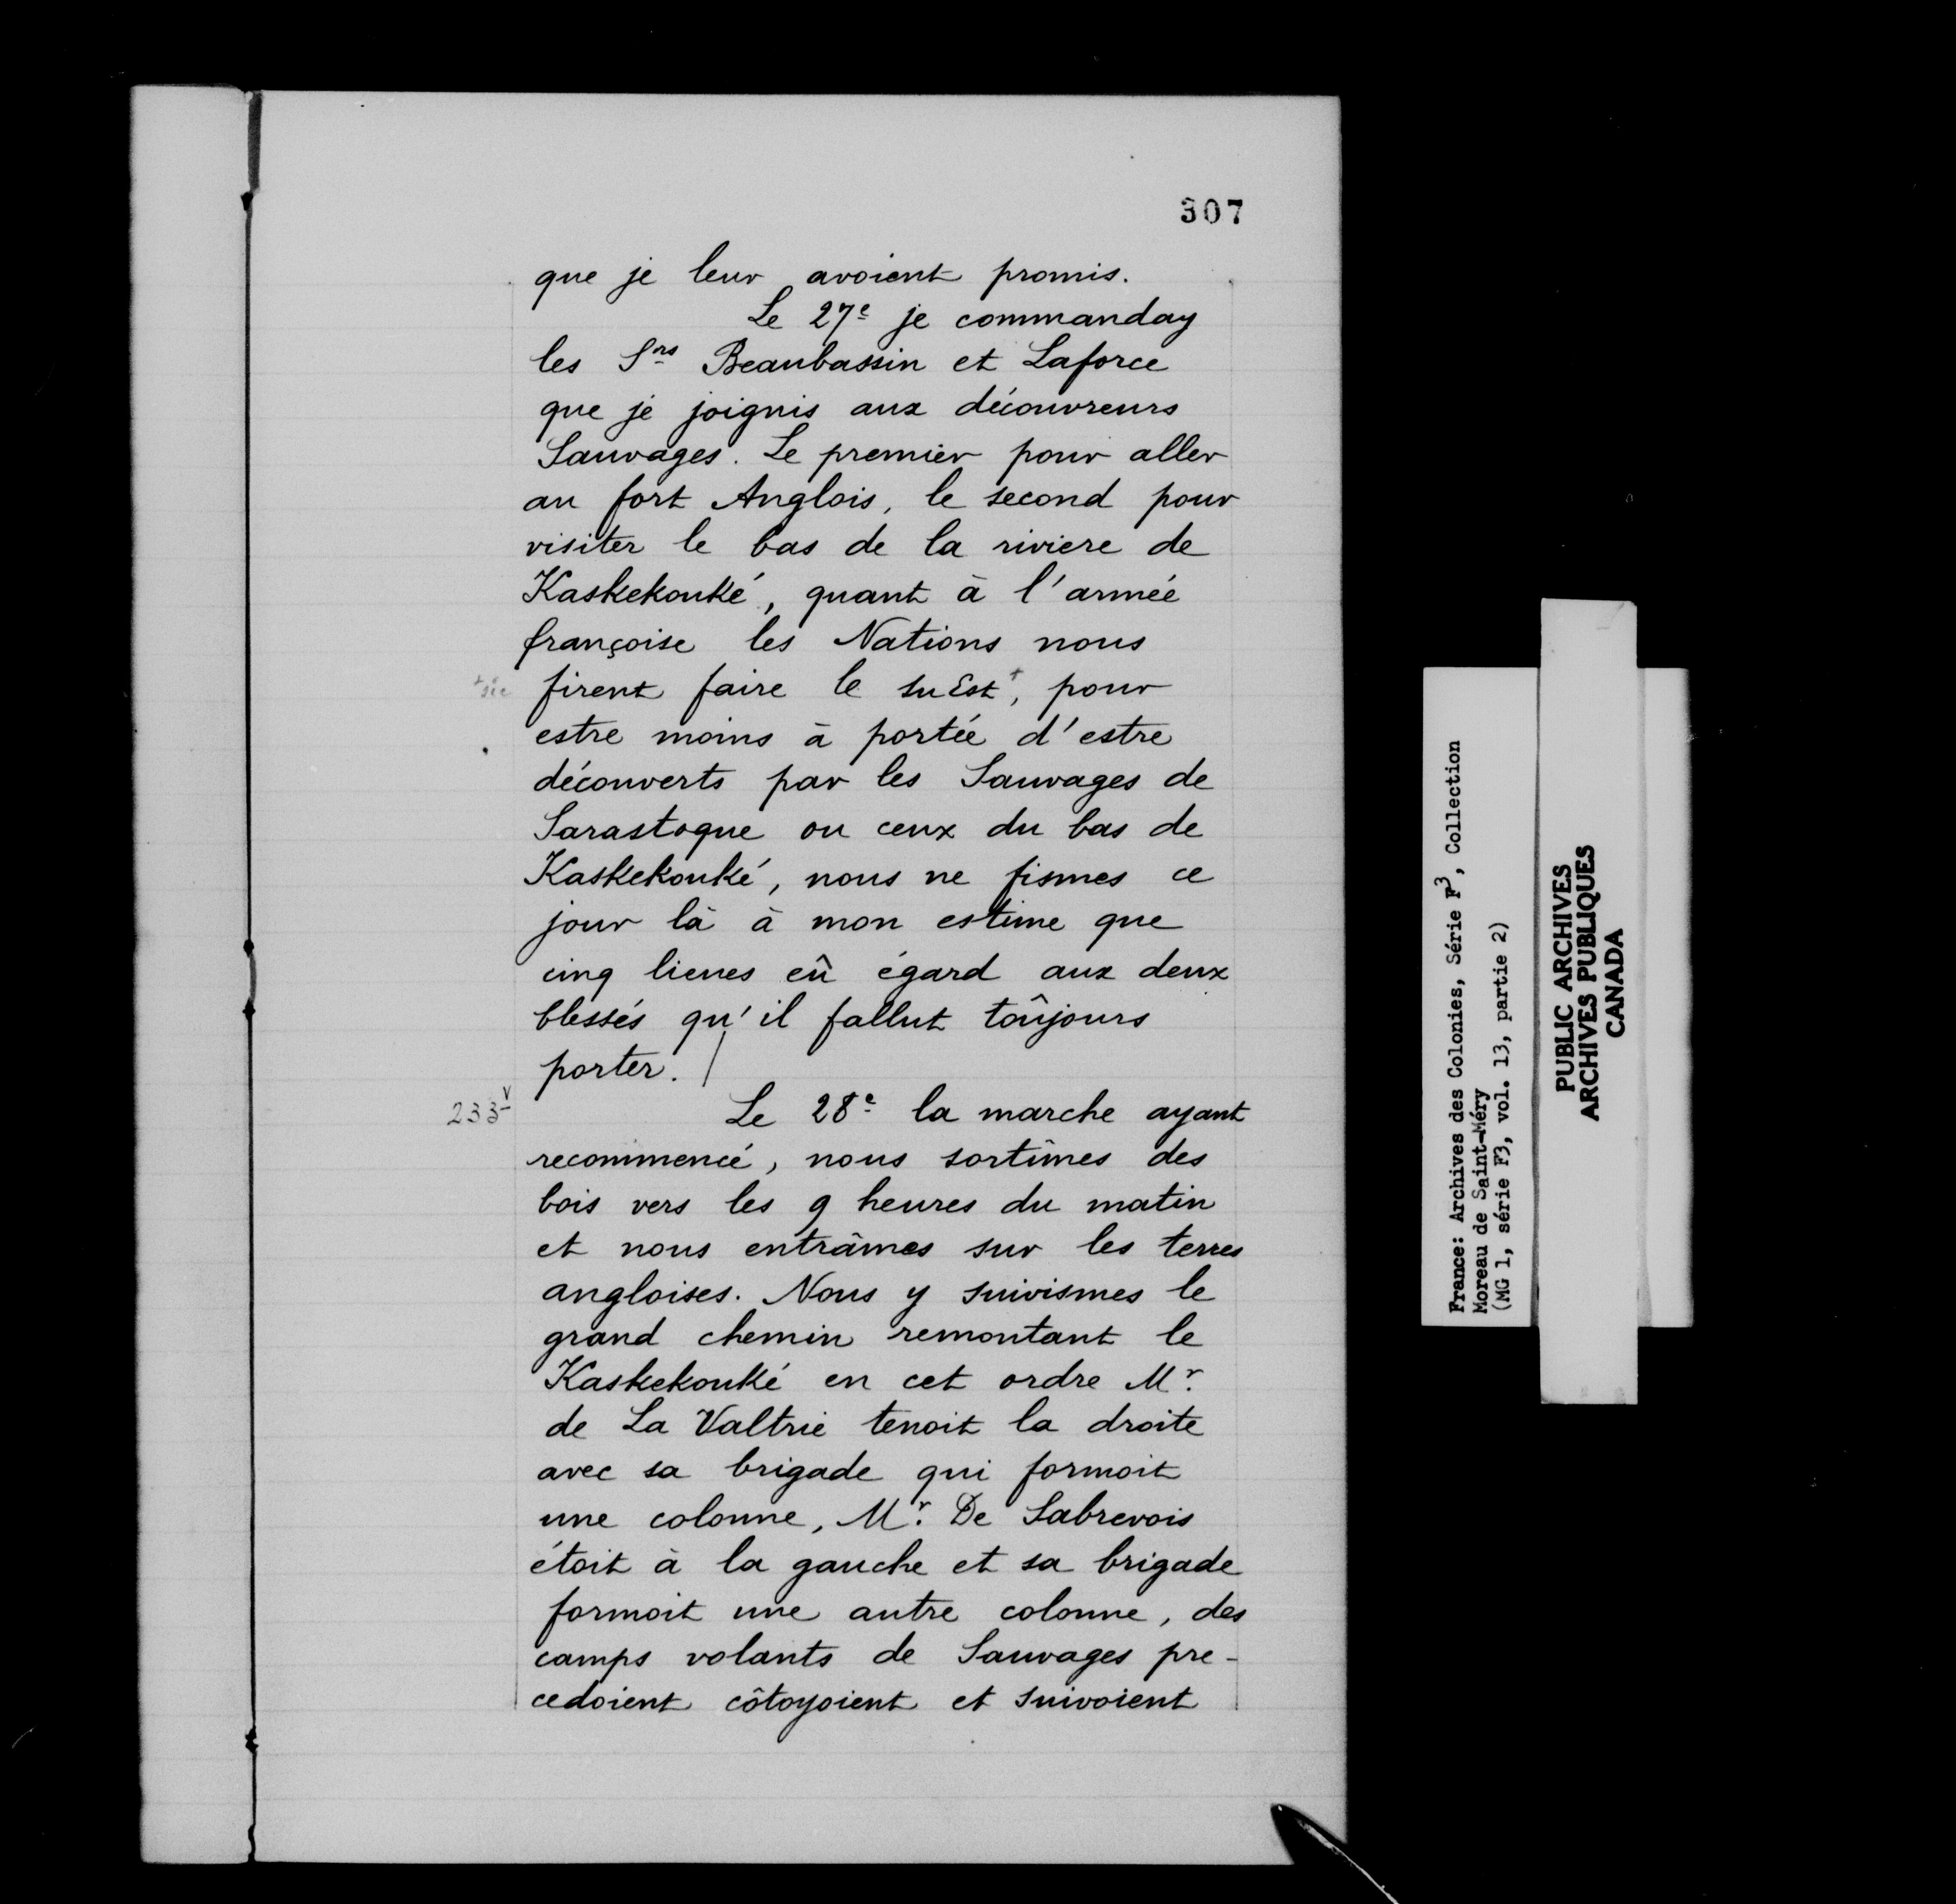 307
que je leur avoient promis.
Le 27e je commanday
les Srs Beaubassin et Laforce
que je joignis aux découvreurs
Sauvages. Le premier pour aller
au fort Anglois, le second pour
visiter le bas de la riviere de
Kaskekouké, quant à l'armée
françoise les Nations nous
+ sic
firent faire le su Est +, pour
estre moins à portée d'estre
découverts par les Sauvages de
Sarastogue ou ceux du bas de
Kaskekouké, nous ne fismes ce
jour là à mon estime que
cinq lieues eû égard aux deux
blessés qu'il fallut toûjours
porter. /
233v
Le 28e la marche ayant
recommencé, nous sortîmes des
bois vers les 9 heures du matin
et nous entrâmes sur les terres
angloises. Nous y suivismes le
grand chemin remontant le
Kaskekouké en cet ordre Mr.
de La Valtrie tenoit la droite
avec sa brigade qui formoit
une colonne, Mr. De Sabrevois
étoit à la gauche et sa brigade
formoit une autre colonne, des
camps volants de Sauvages pre-
cedoient côtoyoient et suivoient
France: Archives des Colonies, Série F3, Collection
Moreau de Saint-Méry
(MG 1, série F3, vol. 13, partie 2)
PUBLIC ARCHIVES
ARCHIVES PUBLIQUES
CANADA